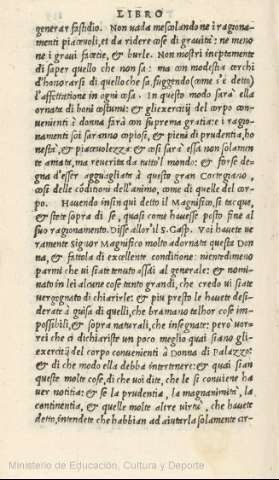 LIBRO
generar fastidio. Non vada mescolando ne i ragiona-
menti piaceuoli, et da ridere cose di grauità: ne meno
ne i graui facetie, & burle. Non mostri ineptamente
di saper quello che non sa: ma con modestia cerchi
d'honorarsi di quello che sa, fuggendo (come s'è detto)
l'affettatione in ogni cosa. In questo modo sarà ella
ornata di boni costumi: & gli exercitij del corpo con-
uenienti à donna farà con suprema gratia: e i ragio-
namenti soi saranno copiosi, & pieni di prudentia, ho
nestà, & piaceuolezza: & così sarà essa non solamen
te amata, ma reuerita da tutto'l mondo: & forse de-
gna d'esser agguagliata à questo gran Cortegiano,
così delle cõditioni dell'animo, come di quelle del cor-
po. Hauendo insin quì detto il Magnifico, si tacque,
& stete sopra di se, quasi come hauesse posto fine al
suo ragionamento. Disse allor'il S. Gasp. Voi hauete ve
ramente Signor Magnifico molto adornata questa Don
na, & fattola di excellente conditione: nientedimeno
parmi che vi siate tenuto assai al generale: & nomi-
nato in lei alcune cose tento grandi, che credo vi siate
vergognato di chiarirle: & piu presto le hauete desi-
derate à guisa di quelli, che bramano talhor cose im-
possibili, & sopra naturali, che insegnate: però vor-
rei che ci dichiariste un poco meglio quai siano gli-
exercitij del corpo conuenienti à Donna di Palazzo:
& di che modo ella debba intertenere: & quai sian
queste molte cose, di che uoi dite, che le si conuiene ha
uer notitia: & se la prudentia, la magnanimità, la
continentia, & quelle molte altre uirtù, che hauete
detto, intendete che habbian ad aiutarla solamente cir-
Ministerio de Educación, Cultura y Deporte